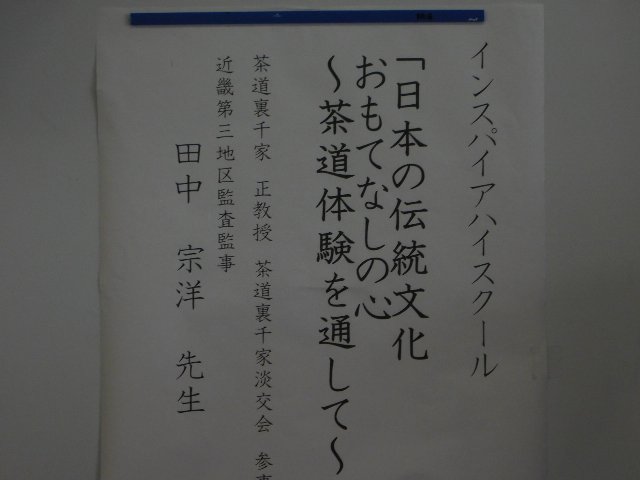 インスパイアハイスクール
「日本の伝統文化
おもてなしの心
～茶道体験を通して～
茶道裏千家 正教授 茶道裏千家淡交会 参事
近畿第三地区監査監事
田中 宗洋 先生